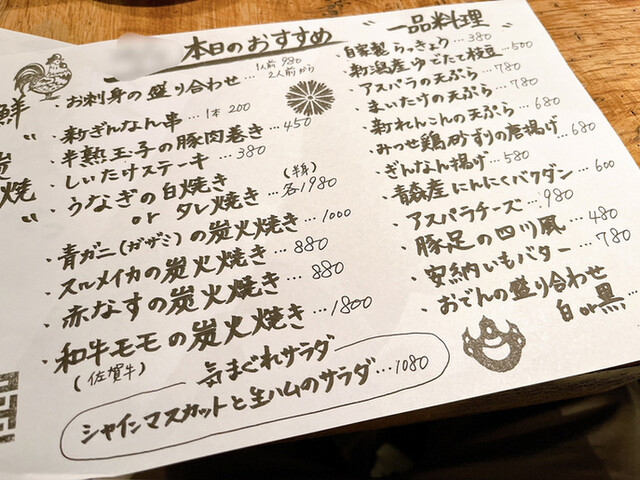 本日のおすすめ
鮮
・お刺身の盛り合わせ…1人前 980
2人前から
・新ぎんなん串…1本 200
・半熟玉子の豚肉巻き…450
炭焼
・しいたけステーキ…380
・うなぎの白焼き (半身)
or タレ焼き…各1980
・青ガニ(ガザミ)の炭火焼き…1000
・スルメイカの炭火焼き…880
・赤なすの炭火焼き…880
・和牛モモの炭火焼き…1800
(佐賀牛)
気まぐれサラダ
シャインマスカットと生ハムのサラダ…1080
"一品料理"
・自家製らっきょう…380
・新潟産ゆでたて枝豆…500
・アスパラの天ぷら…780
・まいたけの天ぷら…780
・新れんこんの天ぷら…680
・みつせ鶏砂ずりの唐揚げ…680
・ぎんなん揚げ…580
・青森産にんにくバクダン…600
・アスパラチーズ…980
・豚足の四川風…480
・安納いもバター…780
・おでんの盛り合わせ
白or黒…